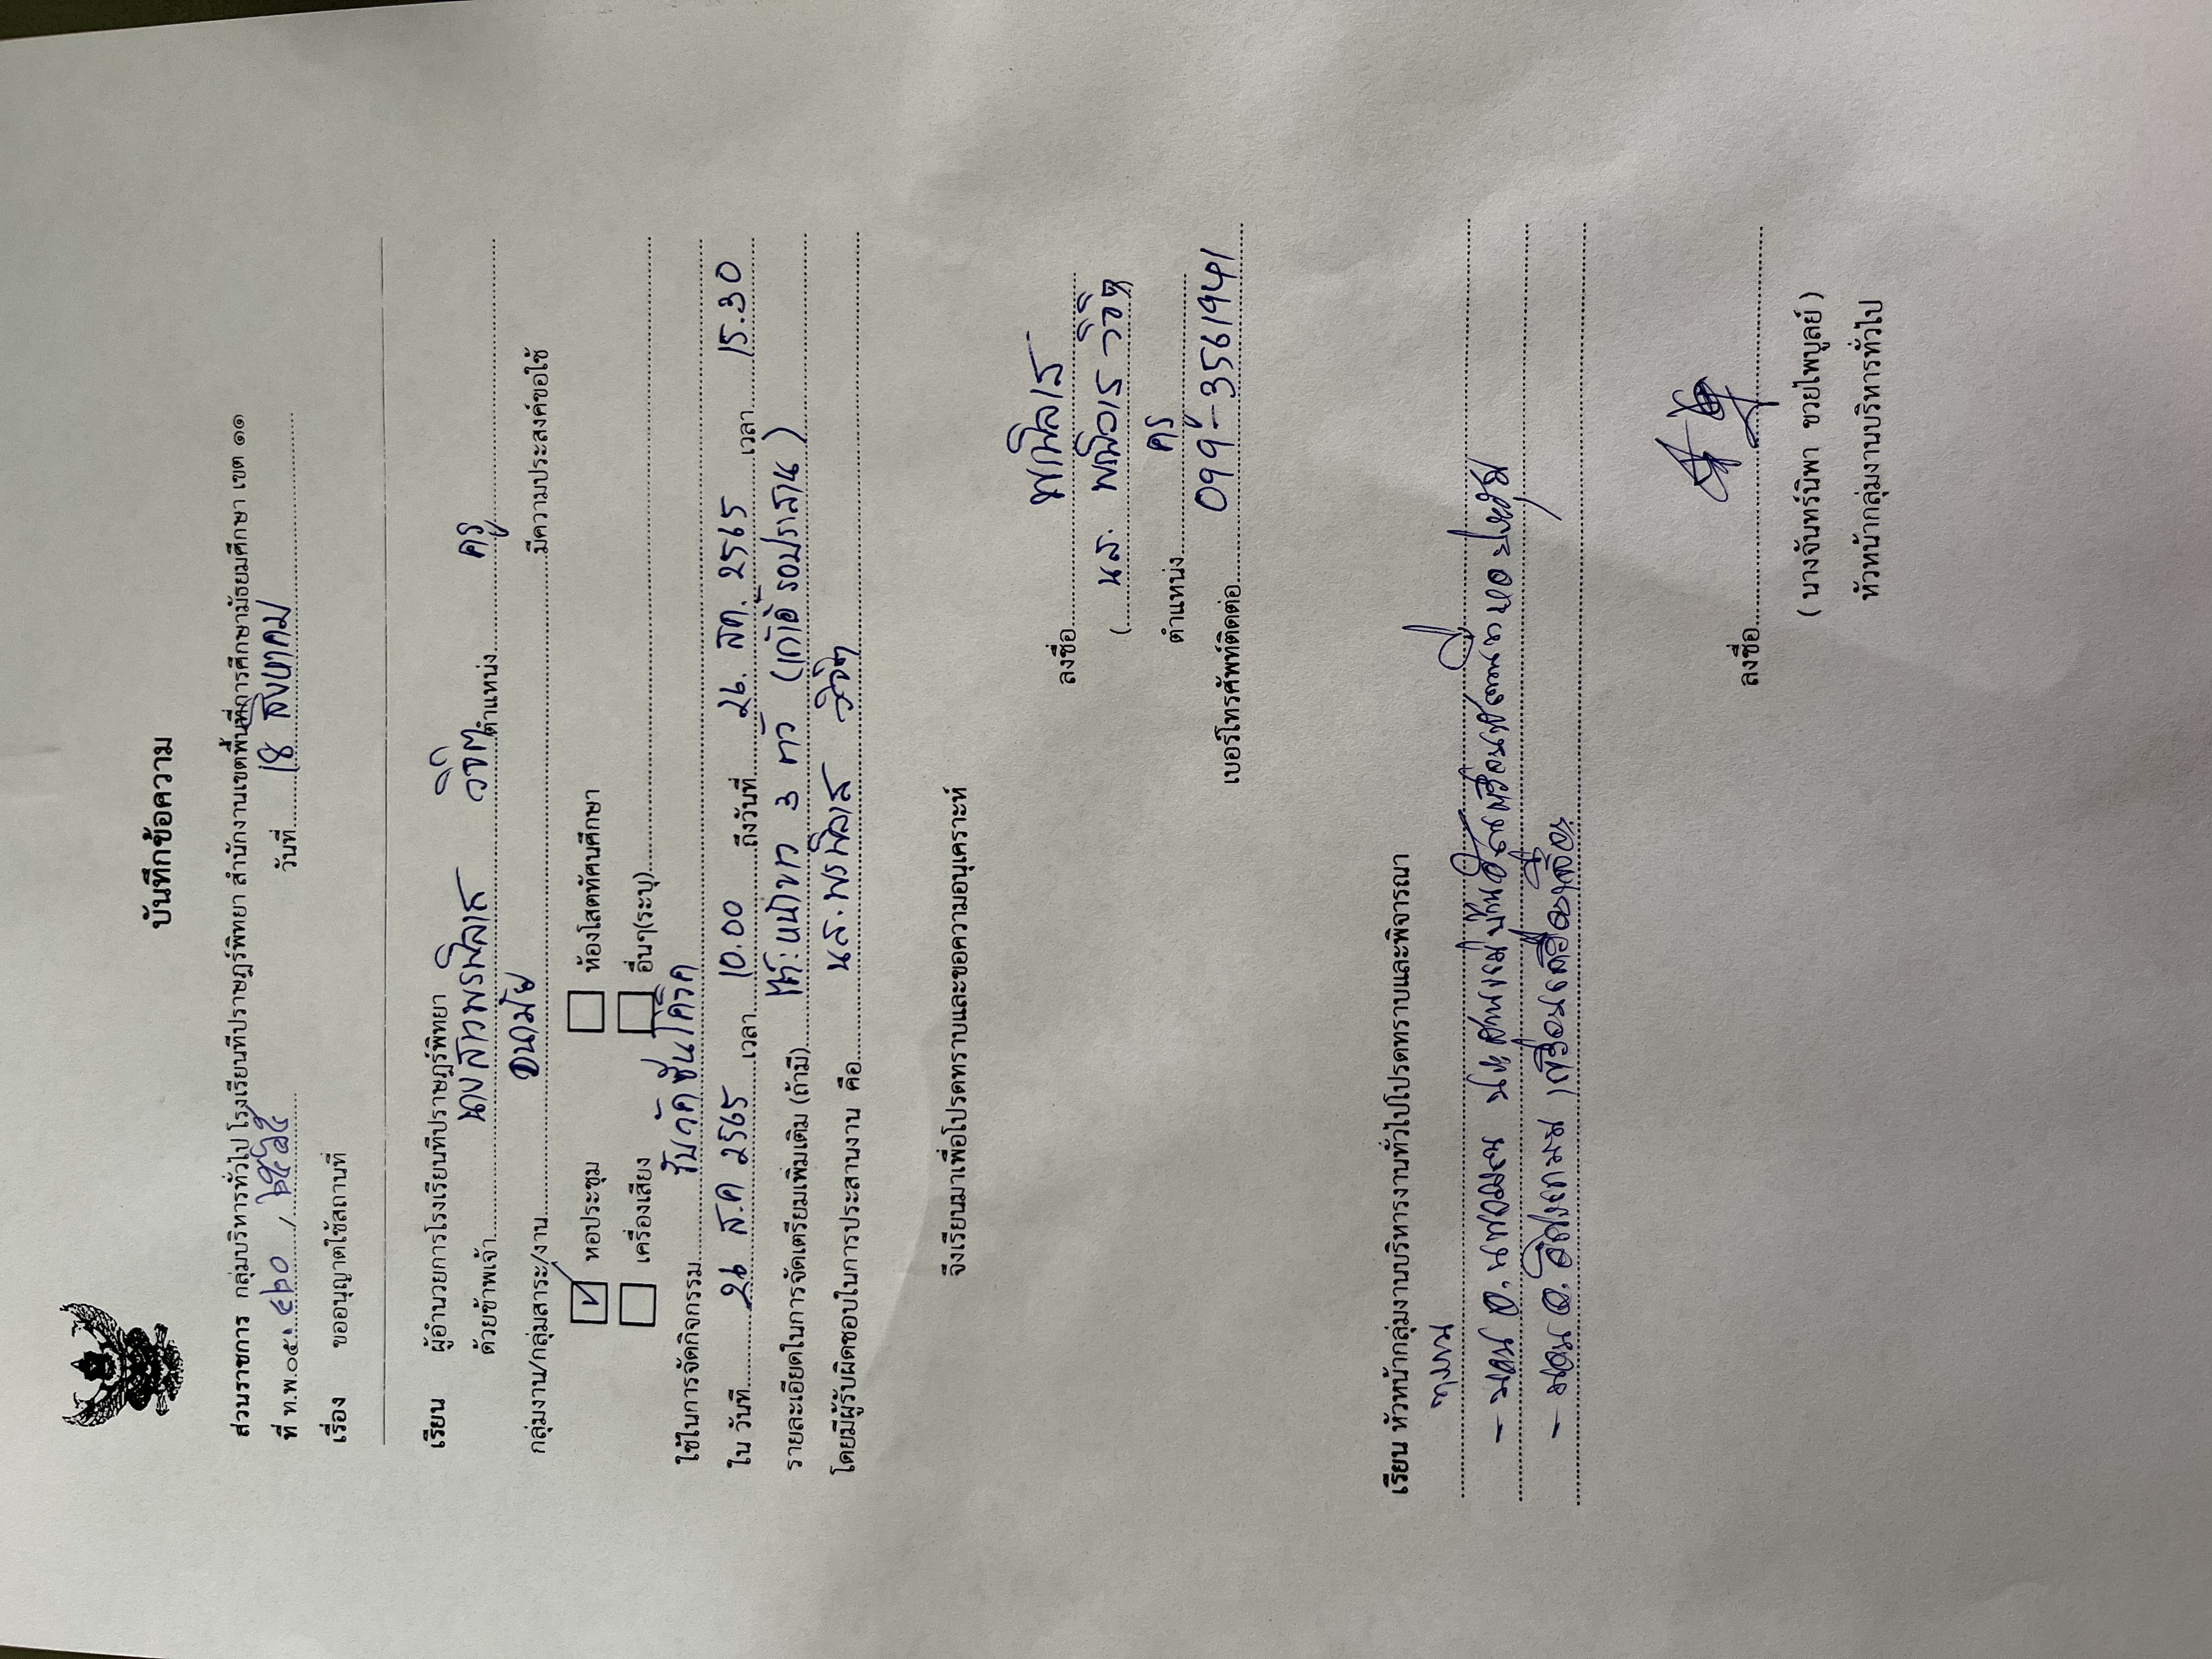 บันทึกข้อความ
ส่วนราชการ กลุ่มบริหารทั่วไป โรงเรียนทีปราษฎร์พิทยา สำนักงานเขตพื้นที่การศึกษามัธยมศึกษา เขต ๑๑
ที่ ท.พ.๐๕. ๔๒๐ / ๒๕๖๕ วันที่ 18 สิงหาคม
เรื่อง ขออนุญาตใช้สถานที่
เรียน ผู้อำนวยการโรงเรียนทีปราษฎร์พิทยา
ด้วยข้าพเจ้า นางสาวพรพิลาส วิจิตร ตำแหน่ง ครู
กลุ่มงาน/กลุ่มสาระ/งาน อนามัย มีความประสงค์ขอใช้
หอประชุม ห้องโสตทัศนศึกษา
เครื่องเสียง อื่นๆ(ระบุ)
ใช้ในการจัดกิจกรรม รับวัคซีนโควิด
ใน วันที่ 26 ส.ค 2565 เวลา 10.00 ถึงวันที่ 26. สค. 2565 เวลา 15.30
รายละเอียดในการจัดเตรียมเพิ่มเติม (ถ้ามี) โต๊ะหน้าขาว 3 ตัว (เก้าอี้ รอประสาน)
โดยมีผู้รับผิดชอบในการประสานงาน คือ น.ส.พรพิลาส วิจิตร
จึงเรียนมาเพื่อโปรดทราบและขอความอนุเคราะห์
ลงชื่อ พรพิลาส
( น.ส. พรพิลาส วิจิตร
ตำแหน่ง ครู
เบอร์โทรศัพท์ติดต่อ 099-3561941
เรียน หัวหน้ากลุ่มงานบริหารงานทั่วไปโปรดทราบและพิจารณา
ทราบ
ลงชื่อ
( นางจันทร์นิพา ชวยไพบูลย์ )
หัวหน้ากลุ่มงานบริหารทั่วไป